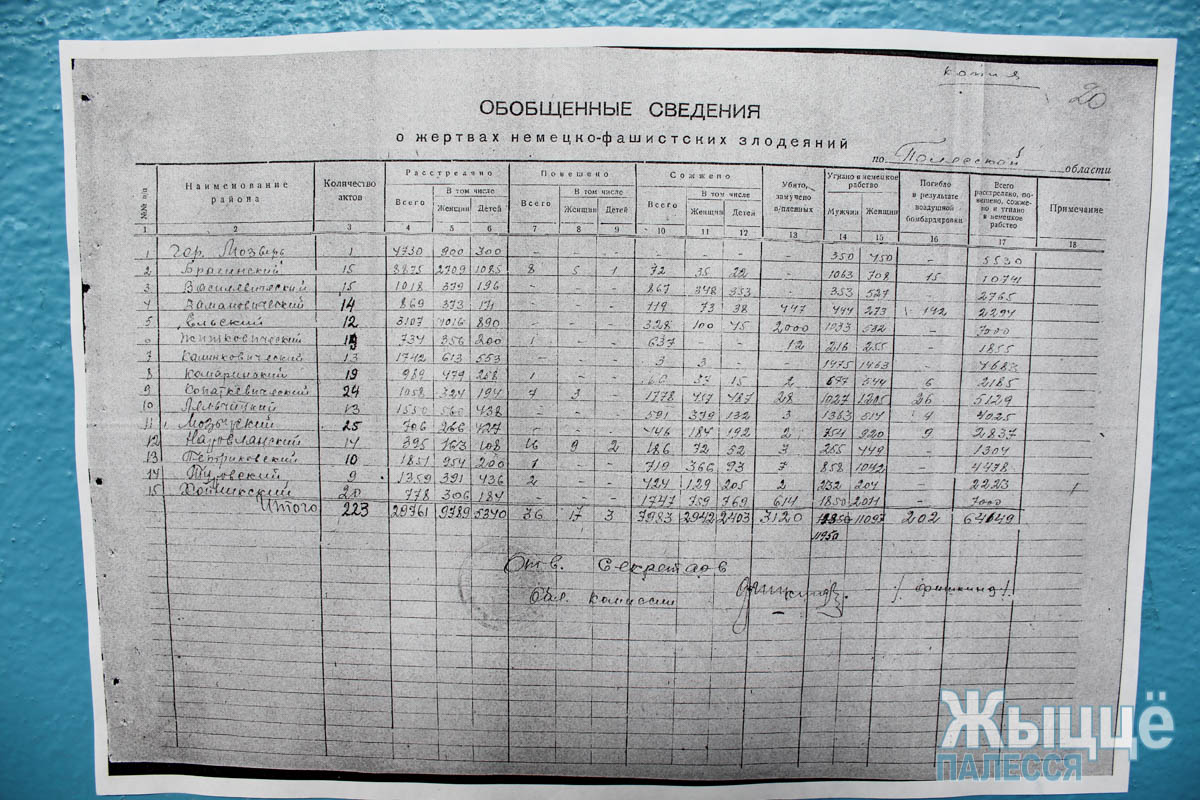 копия
20
ОБОБЩЕННЫЕ СВЕДЕНИЯ
о жертвах немецко-фашистских злодеяний
по Полесской области
№№ п/п | Наименование района | Количество актов | Расстреляно | Повешено | Сожжено | Убито, замучено в/пленных | Угнано в немецкое рабство | Погибло в результате воздушной бомбардировки | Всего расстреляно, повешено, сожжено и угнано в немецкое рабство | Примечание
Всего | В том числе | Всего | В том числе | Всего | В том числе | Мужчин | Женщин
Женщин | Детей | Женщин | Детей | Женщин | Детей
1 2 3 4 5 6 7 8 9 10 11 12 13 14 15 16 17 18
1 гор. Мозырь 1 4730 900 300 - - - - - - - 350 450 - 5530
2 Брагинский 15 8875 2709 1085 8 5 1 72 35 22 - 1063 708 15 10741
3 Василевический 15 1018 379 196 - - - 867 348 353 - 353 527 - 2765
4 14 869 373 171 - - - 119 73 38 447 444 273 142 2294
5 Ельский 12 3107 1016 890 - - - 328 100 45 2000 1033 532 - 7000
6 Житковический 734 356 200 1 - - 637 12 216 255 - 1855
7 Калинковический 13 1742 613 553 - - - 3 3 - - 1475 1463 - 4683
8 Комаринский 19 989 479 258 1 - - 60 15 2 697 544 6 2185
9 Копаткевичский 24 1058 324 194 4 3 - 1778 457 487 28 1027 1205 26 5129
10 Лельчицкий 13 1550 560 438 - - - 591 379 132 3 1363 514 4 4025
11 Мозырский 25 706 266 427 - - - 446 184 192 2 754 920 9 2837
12 Наровлянский 14 395 163 108 16 9 2 186 72 52 3 255 449 - 1304
13 Петриковский 10 1851 954 200 1 - - 719 366 93 7 858 1042 - 4478
14 Туровский 9 1359 391 436 2 - - 424 129 205 2 232 204 - 2223
15 Хойникский 20 778 306 184 - - - 1747 759 769 614 1850 2011 - 7000
Итого 223 29761 9789 5340 36 17 3 7983 2942 2403 3120 11097 202 64649
11950
Отв. Секретарь
Обл. комиссии
Жыццё
ПАЛЕССЯ